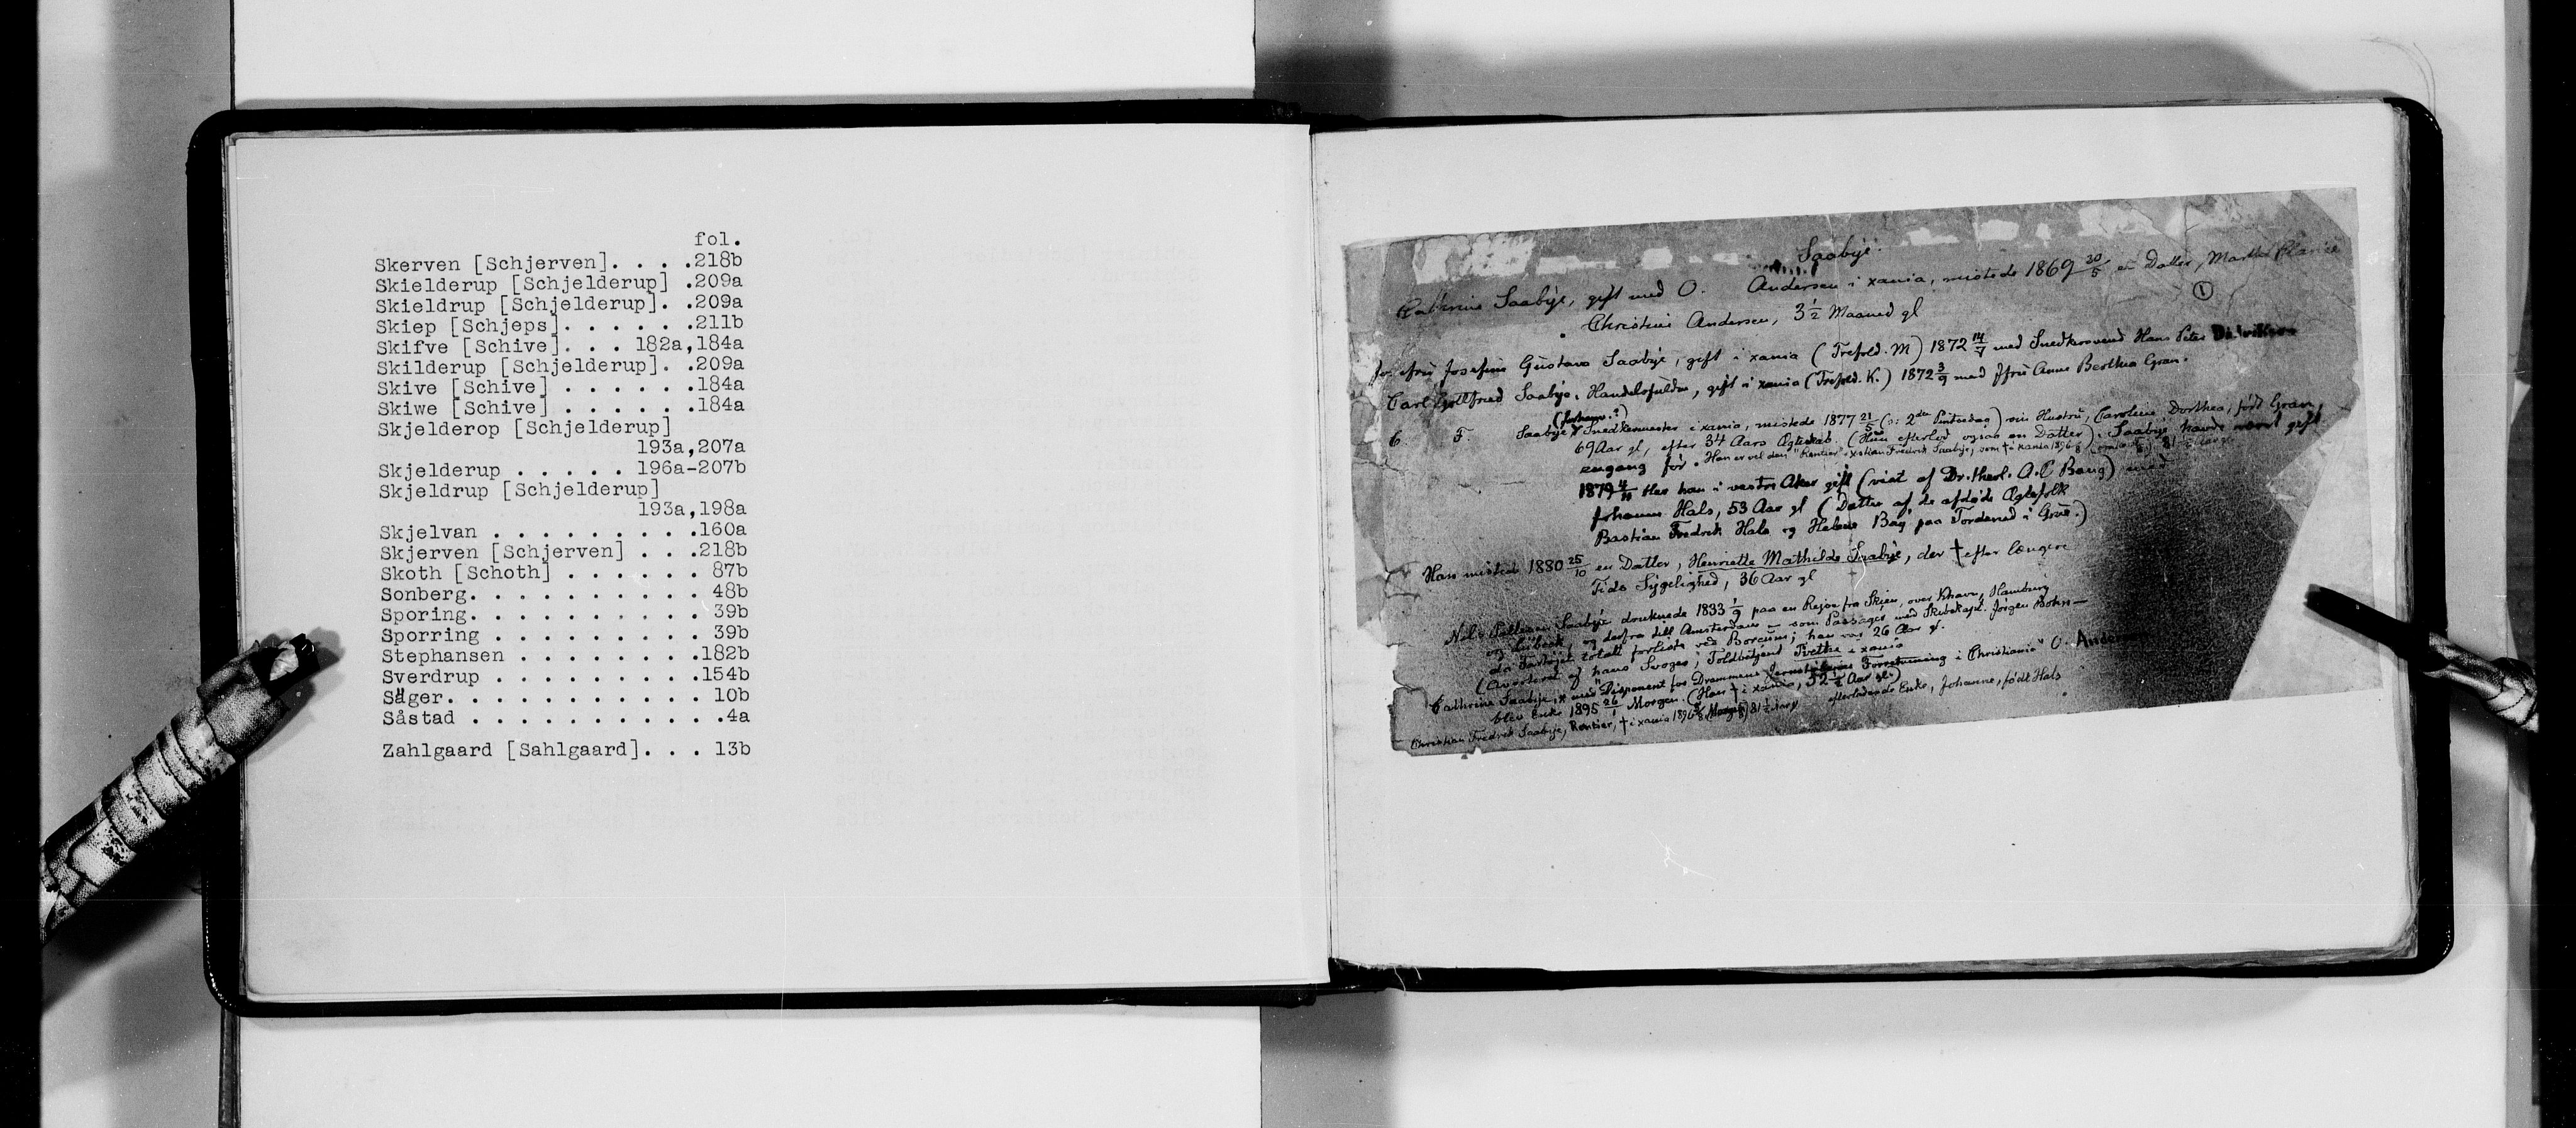 fol.
Skerven [Schjerven]. . . .218b
Skielderup [Schjelderup] .209a
Skieldrup [Schjelderup]. .209a
Skiep [Schjeps]. . . . . .211b
Skifve [Schive]. . . 182a,184a
Skilderup [Schjelderup]. .209a
Skive [Schive] . . . . . .184a
Skiwe [Schive] . . . . . .184a
Skjelderop [Schjelderup]
193a,207a
Skjelderup . . . . . 196a-207b
Skjeldrup [Schjelderup]
193a,198a
Skjelvan . . . . . . . . .160a
Skjerven [Schjerven] . . .218b
Skoth [Schoth] . . . . . . 87b
Sonberg. . . . . . . . . . 48b
Sporing. . . . . . . . . . 39b
Sporring . . . . . . . . . 39b
Stephansen . . . . . . . .182b
Sverdrup . . . . . . . . .154b
Säger. . . . . . . . . . . 10b
Såstad . . . . . . . . . . .4a
Zahlgaard [Sahlgaard]. . . 13b
Saabÿe.
Cathrine Saabÿe, gift med O. Andersen i xania, mistede 1869 30/5 en Datter, Martha
①
Christine Andersen, 3½ Maaned gl
Josefine Gustava Saabÿe, gift i xania (Trefold. M) 1872 14/7 med Snedkersvend Hans Peter
Carl Gottfried Saabÿe, Handelsfuldm, gift i xania (Trefold. K.) 1872 3/9 med Jfru Anne Berthea Gran.
(forhenv.?)
C. F. Saabÿe, Snedkermester i xania, mistede 1877 21/5 (ɔ: 2den Pintsedag) sin Hustru, Caroline Dorthea, født Gran,
69 Aar gl, efter 34 Aars Ægteskab. (Hun efterlod ogsaa en Datter). Saabÿe havde været gift
engang før. Han er vel den "Rentier" Christian Fredrik Saabÿe, som † i xania 1896
1879 4/11 blev han i vestre Aker gift (viet af Dr. theol. A. C Bang) med
Johanne Hals, 53 Aar gl (Datter af de afdøde Ægtefolk
Bastian Fredrik Hals og Helene Bag paa Tordenrud i Grue.)
Han mistede 1880 25/10 en Datter, Henriette Mathilde Saabÿe, der † efter længere
Tids Sÿgelighed, 36 Aar gl
Saabÿe druknede 1833 1/9 paa en Rejse fra Skien, over Khavn, Hamburg
og Lübeck, og derfra till Amsterdam – som Passager med Skibskapt. Jørgen Bohn –
da Fartøjet totalt forliste ved Borcum; han var 26 Aar gl.
(Averteret af hans Svoger, Toldbetjent Tvethe i xania
Cathrine Saabÿe, x med "Disponent for Drammens Jernstøberies Forretning i Christiania" O. Andersen
blev Enke 1895 26/1 Morgen. (Han † i xania, 52½ Aar gl.)
Christian Fredrik Saabÿe, Rentier, † i xania 1896 81½ Aar gl efterladende Enke, Johanne, født Hals